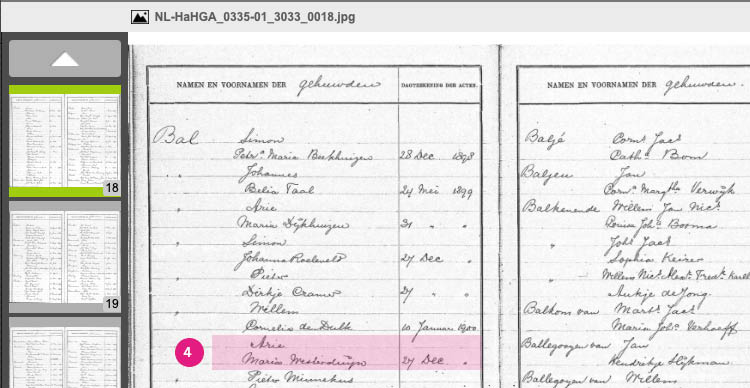 NL-HaHGA_0335-01_3033_0018.jpg
18
19
NAMEN EN VOORNAMEN DER gehuwden
DAGTEEKENING DER ACTEN.
Bal Simon
Petra. Maria Beekhuizen 28 Dec 1898
„ Johannes
Belia Taal 24 Mei 1899
„ Arie
Maria Dijkhuizen 31 „ „
„ Simon
Johanna Roeleveld 27 Dec „
Pieter
Dirkje Cramer 27 „ „
„ Willem
Cornelia den Dulk 10 Januari 1900
4
Arie
Maria Westerduijn 27 Dec „
„ Pieter
NAMEN EN VOORNAMEN DER gehuwden.
Baljé Corns. Jacs
Catha. Bom
Baljeu Jan
Corna. Margtha. Verwijk
Balkenende Willem Jan Nics.
Louisa Joha. Bosma
„ Johs. Jacs
Sophia Keizer
„ Willem Nics.
Aukje de Jong.
Balkom van Marts. Jacs
Maria Joha. Verhoeff
Ballegooyen van Jan
Hendrikje Slijkman
Ballegooyen van Willem